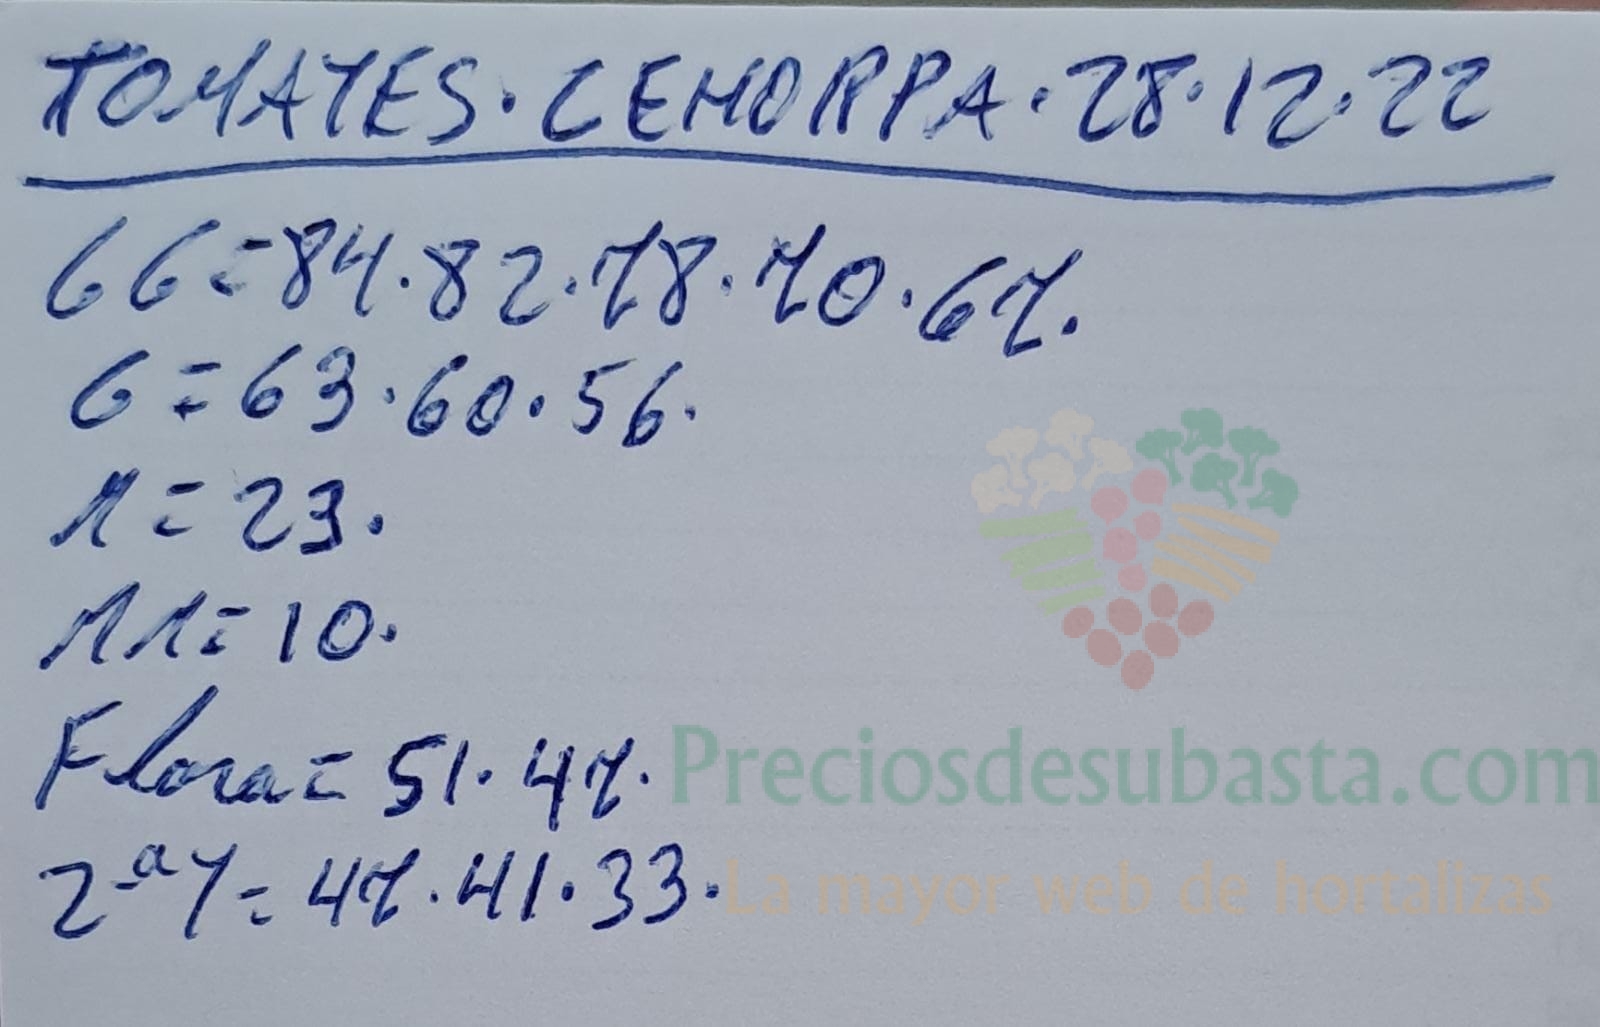 TOMATES. CEHORPA. 28.12.22
GG=84.82.78.70.67.
G=63.60.56.
M=23.
MM=10.
Flora=51.47.
2ªT=47.41.33.
Preciosdesubasta.com
La mayor web de hortalizas